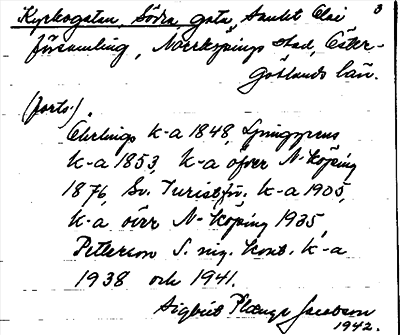 3
Kyrkogatan, Södra, gata, Sankt Olai
församling, Norrköpings stad, Öster-
götlands län.
(forts.)
Ehrlings k-a 1848, Ljunggrens
k-a 1853, k-a öfver N-köping
1876, Sv. Turistför. k-a 1905,
k-a över N-köping 1935,
Petterson S. nig. kont. k-a
1938 och 1941.
Sigbrit Plænge Jacobson
1942.